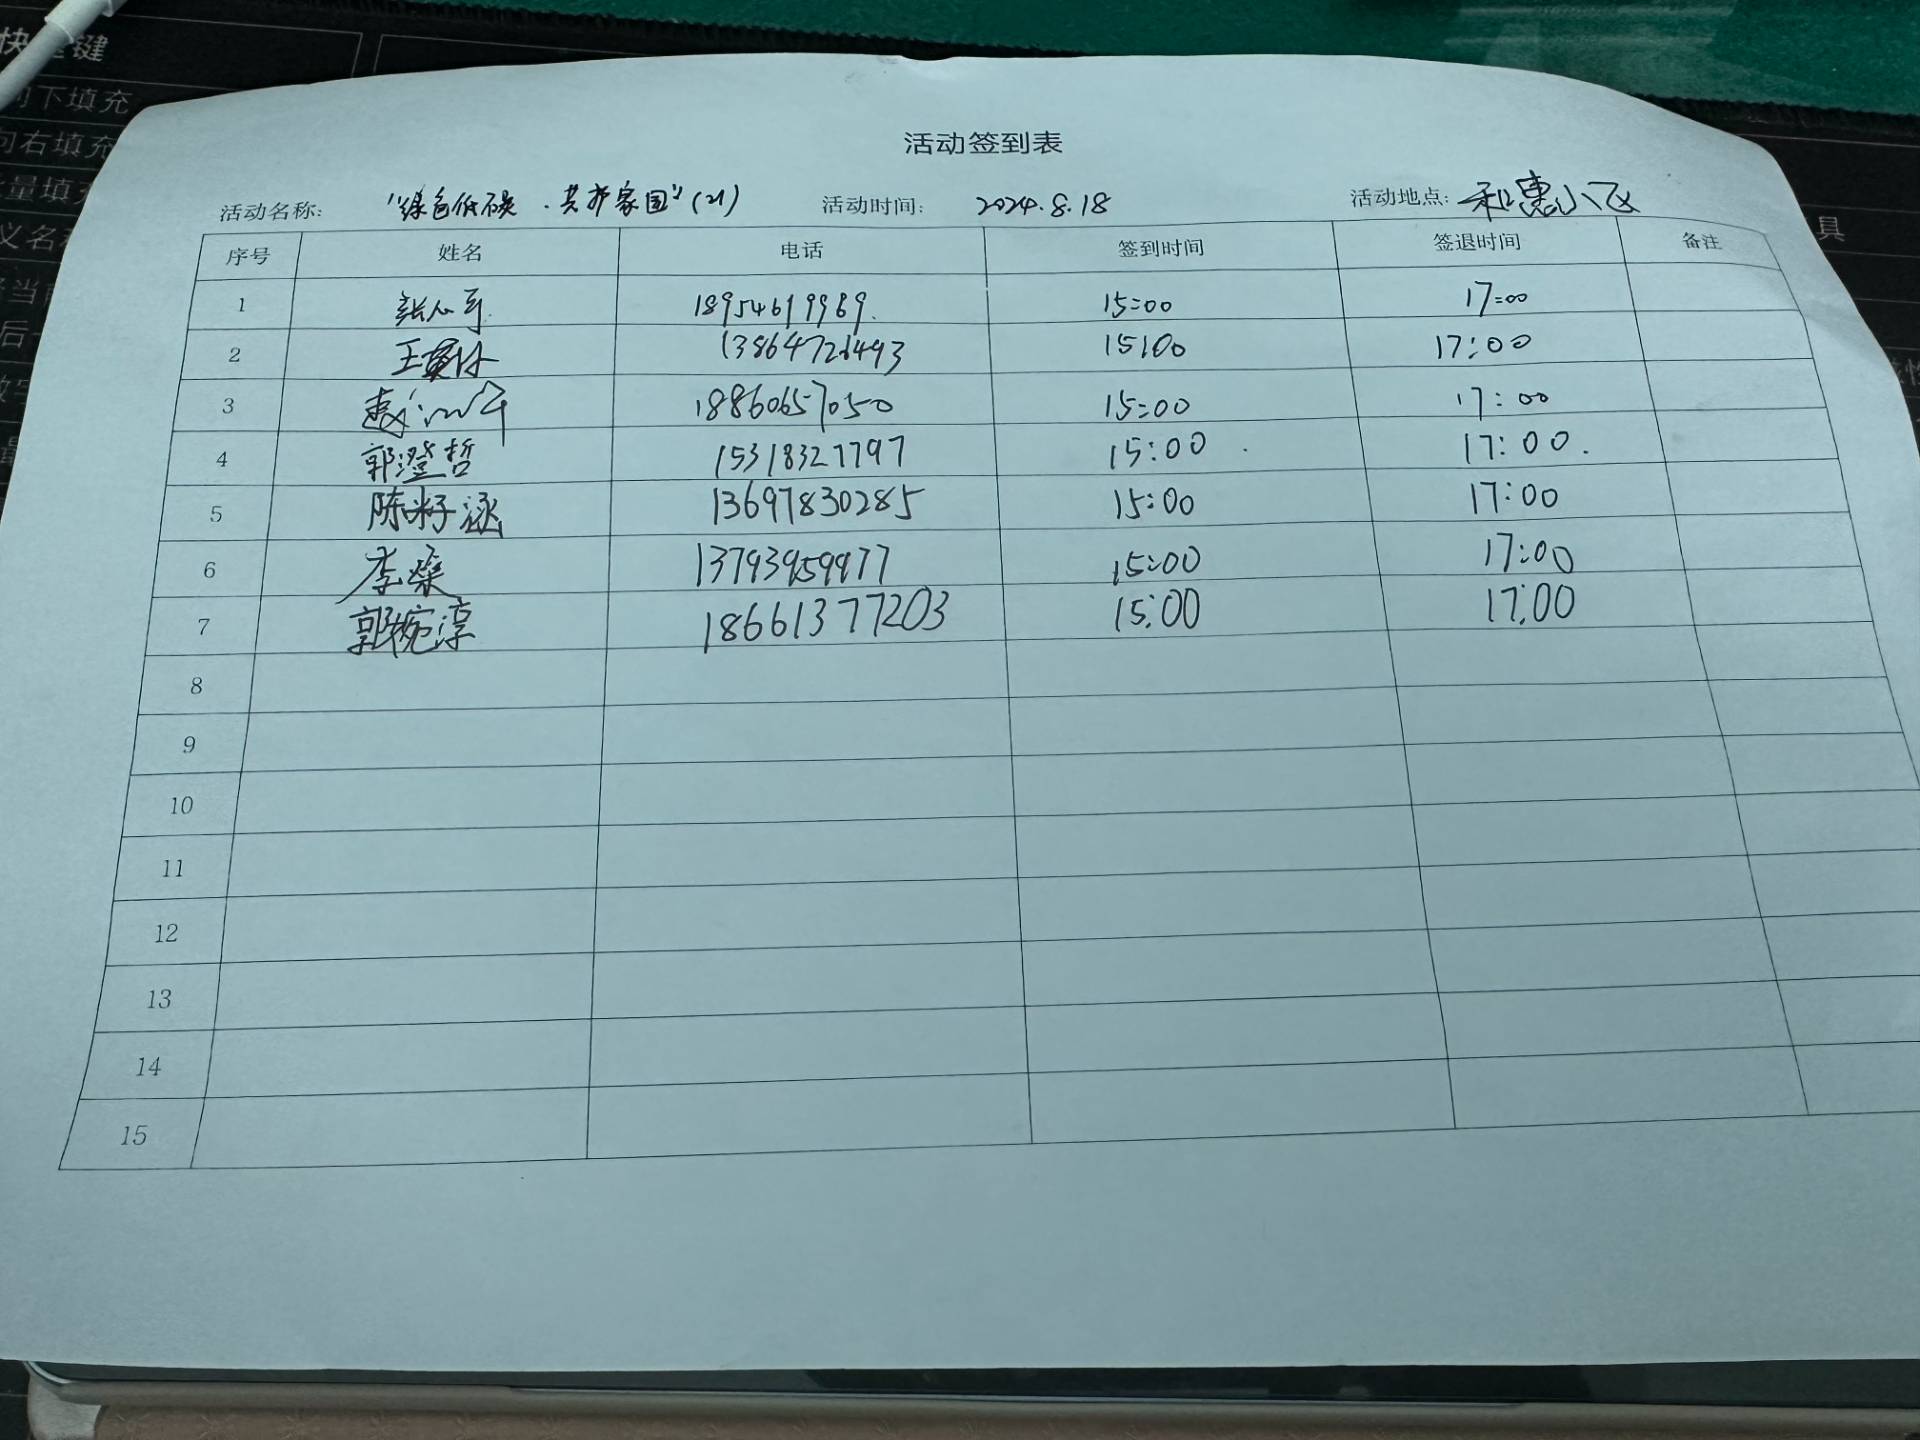 快捷键
向下填充
向右填充
活动签到表
活动名称: "绿色低碳.共护家园"(21) 活动时间: 2024.8.18 活动地点: 和惠小区
具
序号 姓名 电话 签到时间 签退时间 备注
1 18954619989. 15:00 17:00
2 13864726493 15:00 17:00
3 18860657050 15:00 17:00
4 郭澄哲 15318327797 15:00 17:00.
5 陈籽涵 13697830285 15:00 17:00
6 李燊 13793959977 15:00 17:00
7 郭婉淳 18661377203 15:00 17:00
8
9
10
11
12
13
14
15